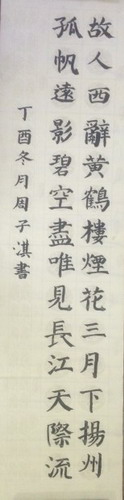 故人西辭黃鶴樓煙花三月下揚州
孤帆遠影碧空盡唯見長江天際流
丁酉冬月周子淇書